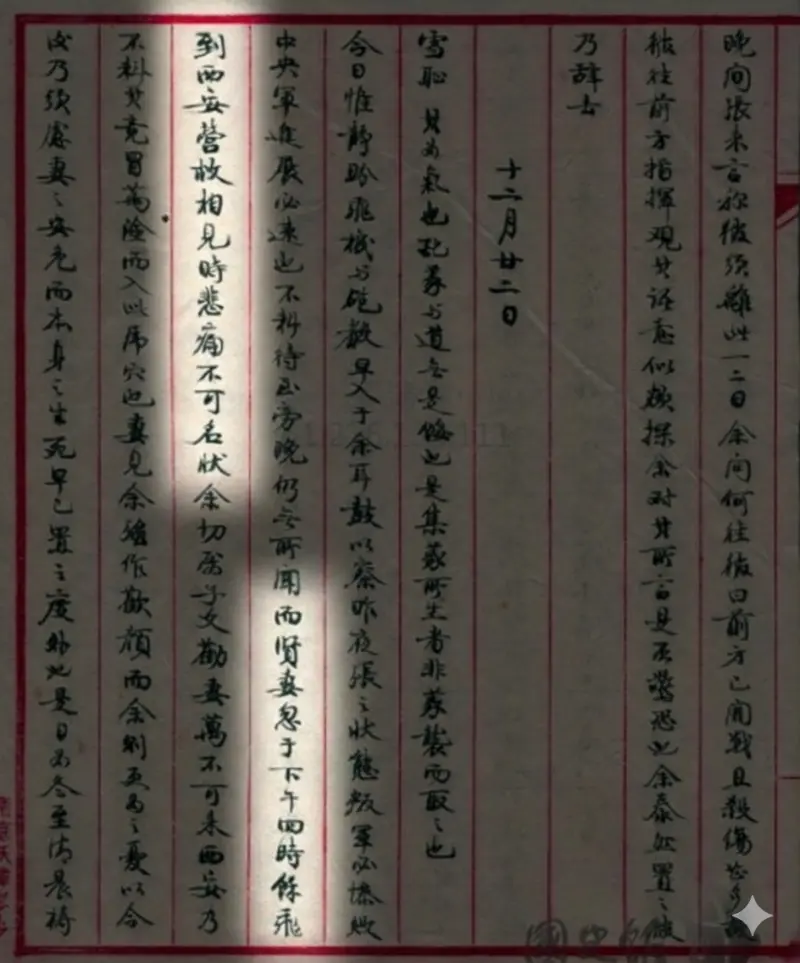 晚間張來言称彼須離此一二日余问何往彼曰前方已開戰且殺傷甚多故
彼往前方指揮观其詞意似欲探余对其所言是否驚恐也余泰然置之彼
乃辞去
十二月廿二日
雪恥 其为氣也配義与道無是餒也是集義所生者非義襲而取之也
今日惟静盼飛機与砲聲早入于余耳鼓以察昨夜張之状態叛軍必慘敗
中央軍進展必速也不料待至旁晚仍無所聞而贤妻忽于下午四時餘飛
到西安营救相見時悲痛不可名状余切属子文勸妻萬不可来西安乃
不料其竟冒萬險而入此虎穴也妻見余強作歡顔而余則更为之憂以今
後乃須慮妻之安危而本身之生死早已置之度外也是日为冬至清晨祷
國史館